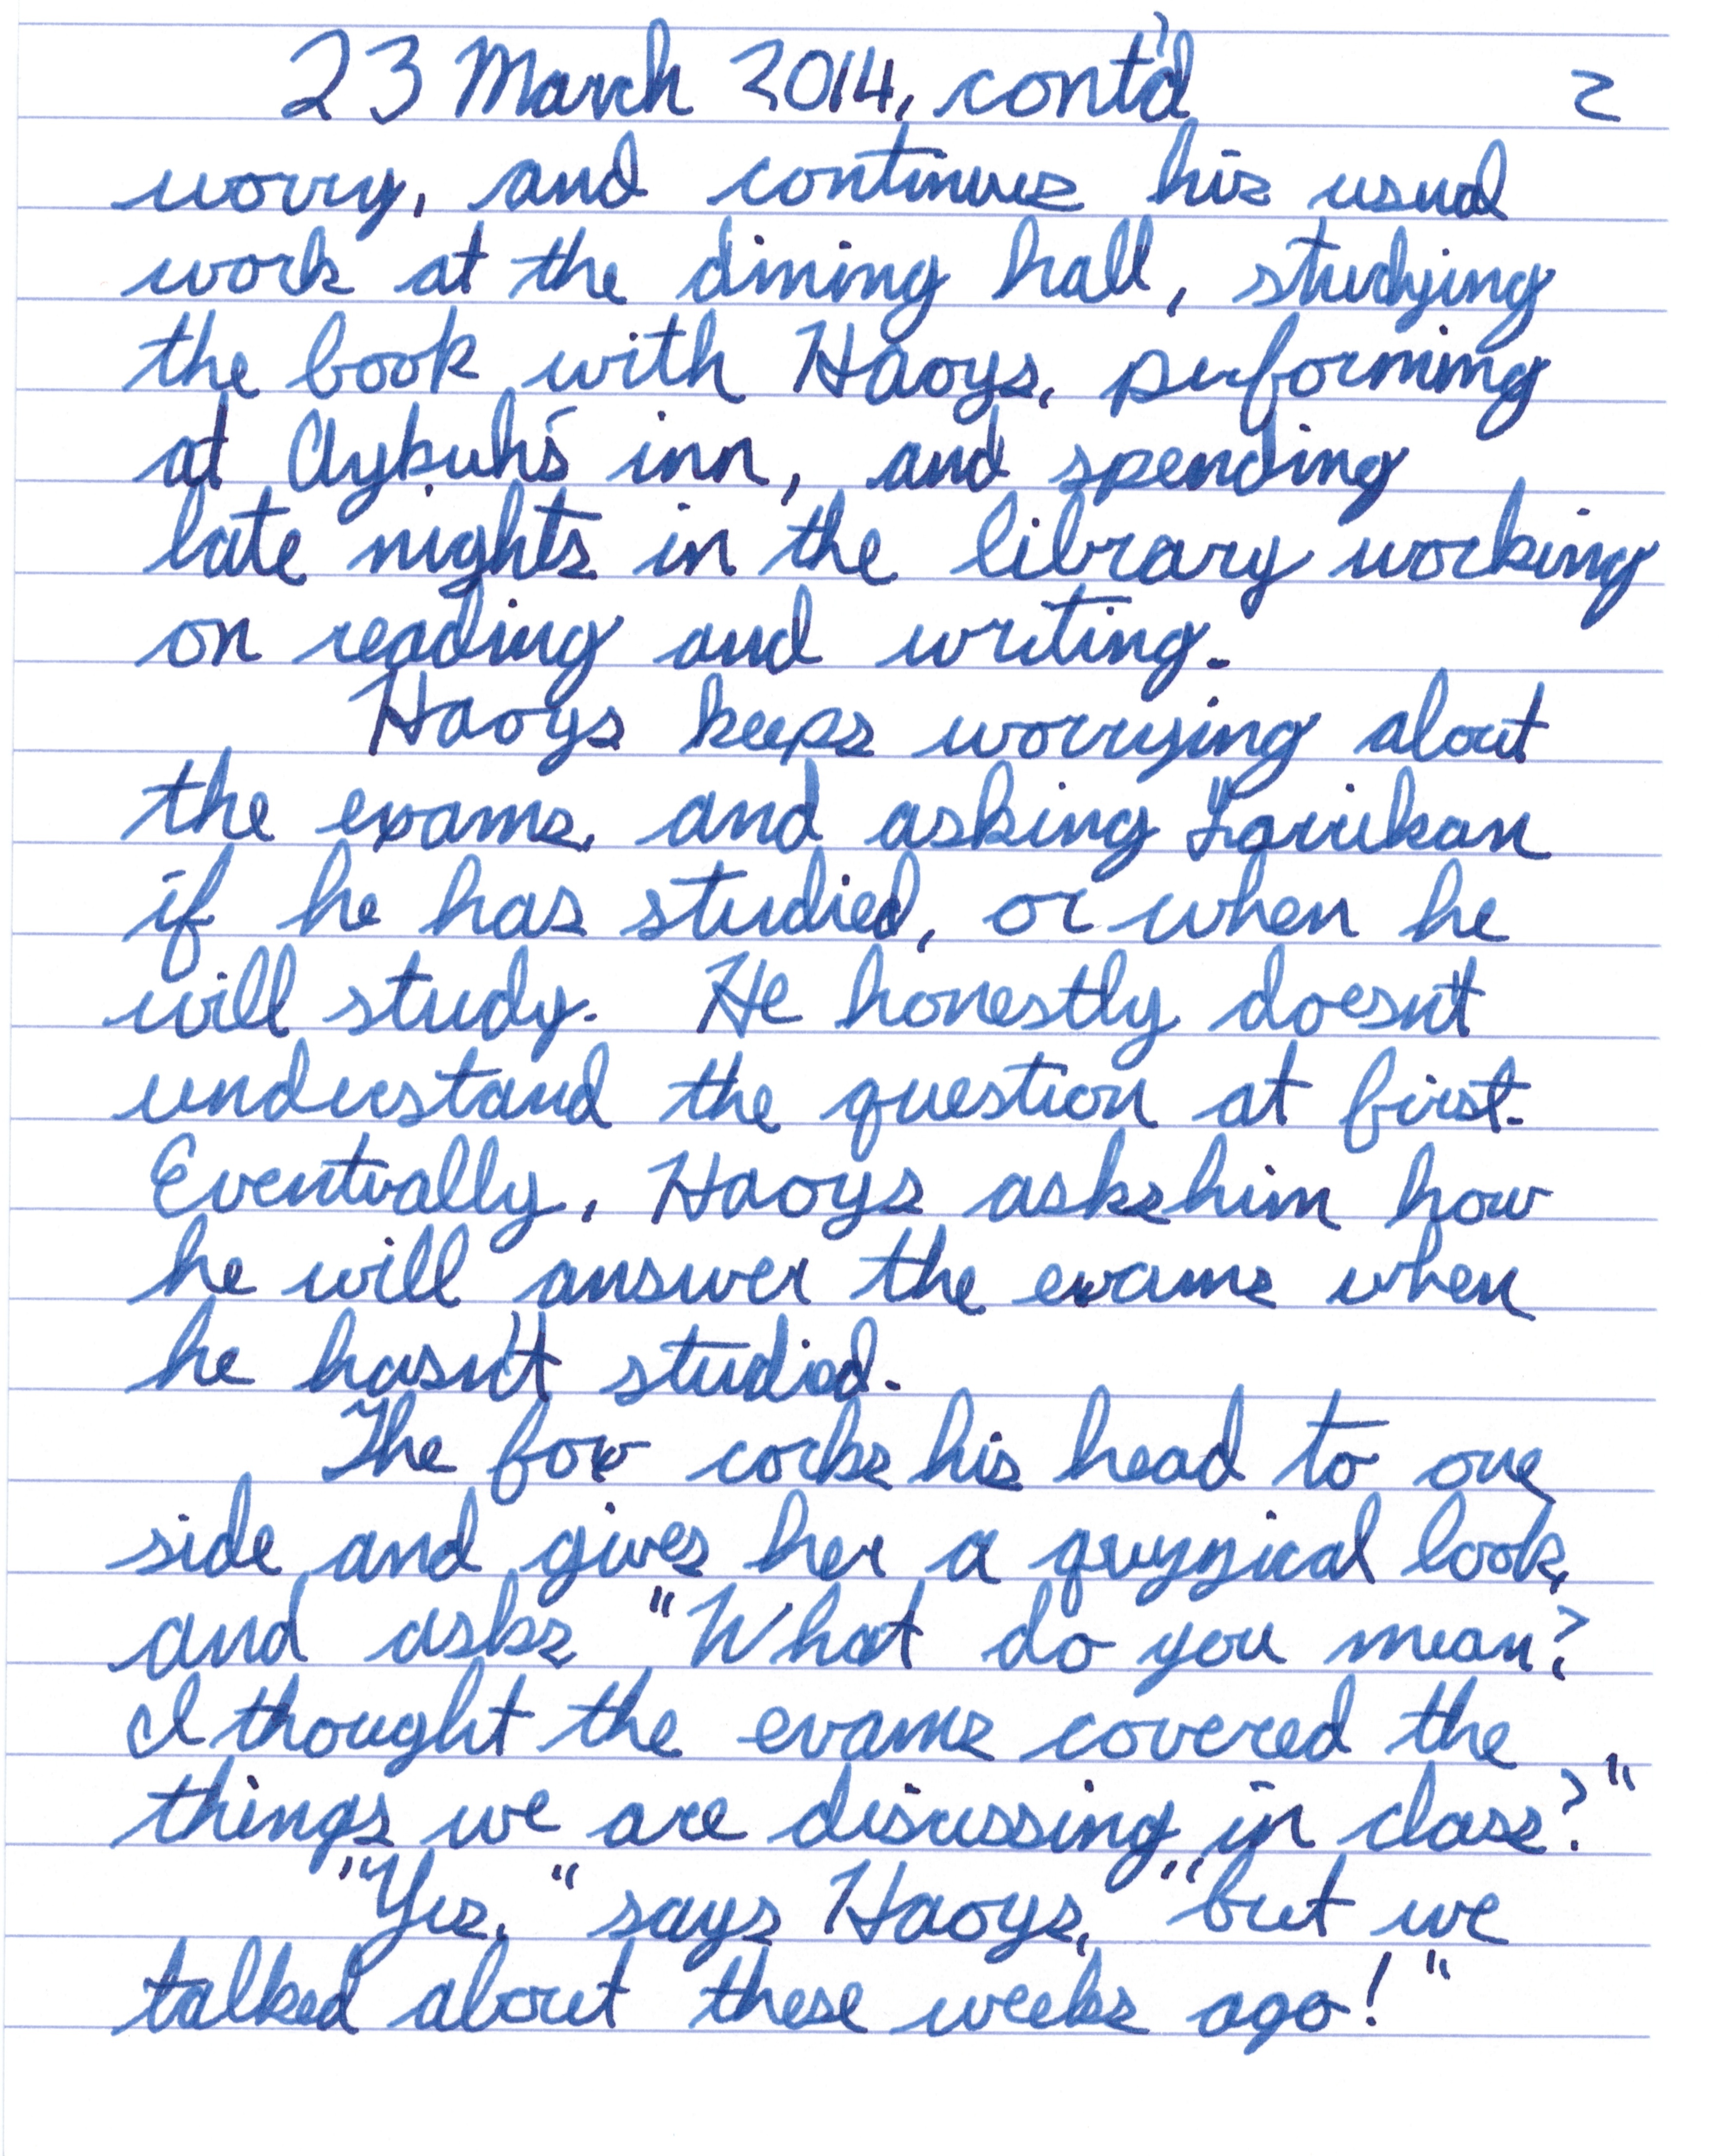 23 March 2014, cont'd 2
worry, and continues his usual
work at the dining hall, studying
the book with Haoys, performing
at Aybuh's inn, and spending
late nights in the library working
on reading and writing.
Haoys keeps worrying about
the exams, and asking Łarikan
if he has studied, or when he
will study. He honestly doesn't
understand the question at first.
Eventually, Haoys asks him how
he will answer the exams when
he hasn't studied.
The fox cocks his head to one
side and gives her a quizzical look,
and asks "What do you mean?
I thought the exams covered the
things we are discussing in class?"
"Yes," says Haoys, "but we
talked about these weeks ago!"